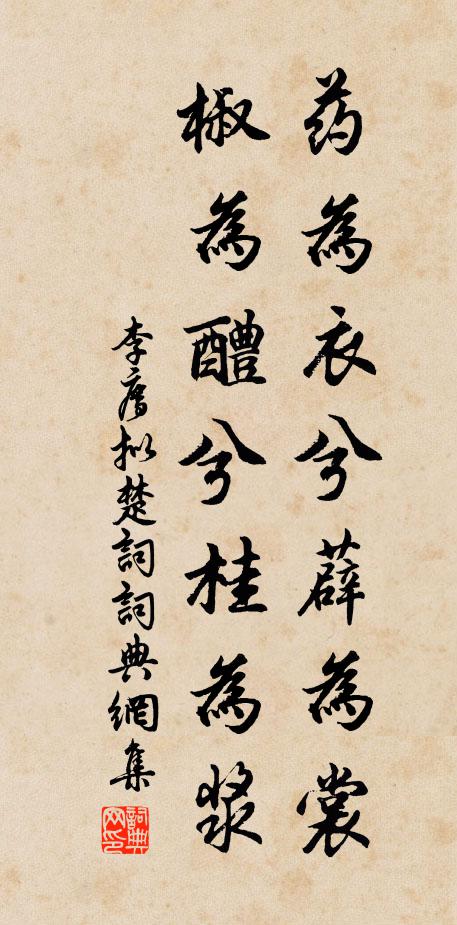 药為衣兮薜為裳
椒為醴兮桂為漿
李廌拟楚詞詞典網集
詞典
网印